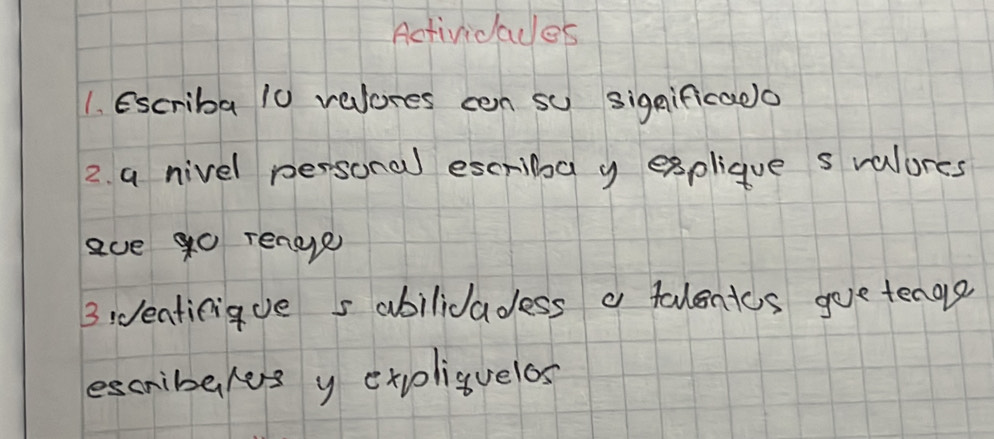 Actividades
1. Escriba 10 valores con su significado
2. a nivel personal escriba y explique 5 valores
que yo tenga
3. identifique 5 abilidadess o talentos que tenga
escribalos y expliquelos